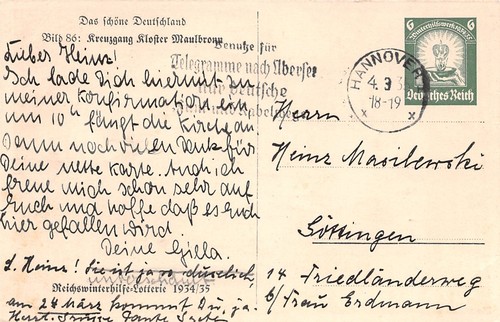 Das schöne Deutschland
Bild 86: Kreuzgang Kloster Maulbronn
Lieber Heinz!
Ich lade Dich hiermit zu
meiner Konfirmation ein
um 10 h fängt die Kirche an
Dann noch vielen Dank für
Deine nette Karte. Auch ich
freue mich schon sehr auf
Euch und hoffe daß es Euch
hier gefallen wird.
Deine Gilla.
L. Heinz! Sie ist ja so
unverschämt
Reichswinterhilfe-Lotterie 1934/35
am 24 März kommst Du, ja.
Tante Grete
Benutze für
Telegramme nach Übersee
nur deutsche
HANNOVER
4. 3
18-19
x x
6 Winterhilfswerk 6
Deutsches Reich
Herrn
Heinz Masilewski
Göttingen
14 Friedländerweg
b/ Frau Erdmann